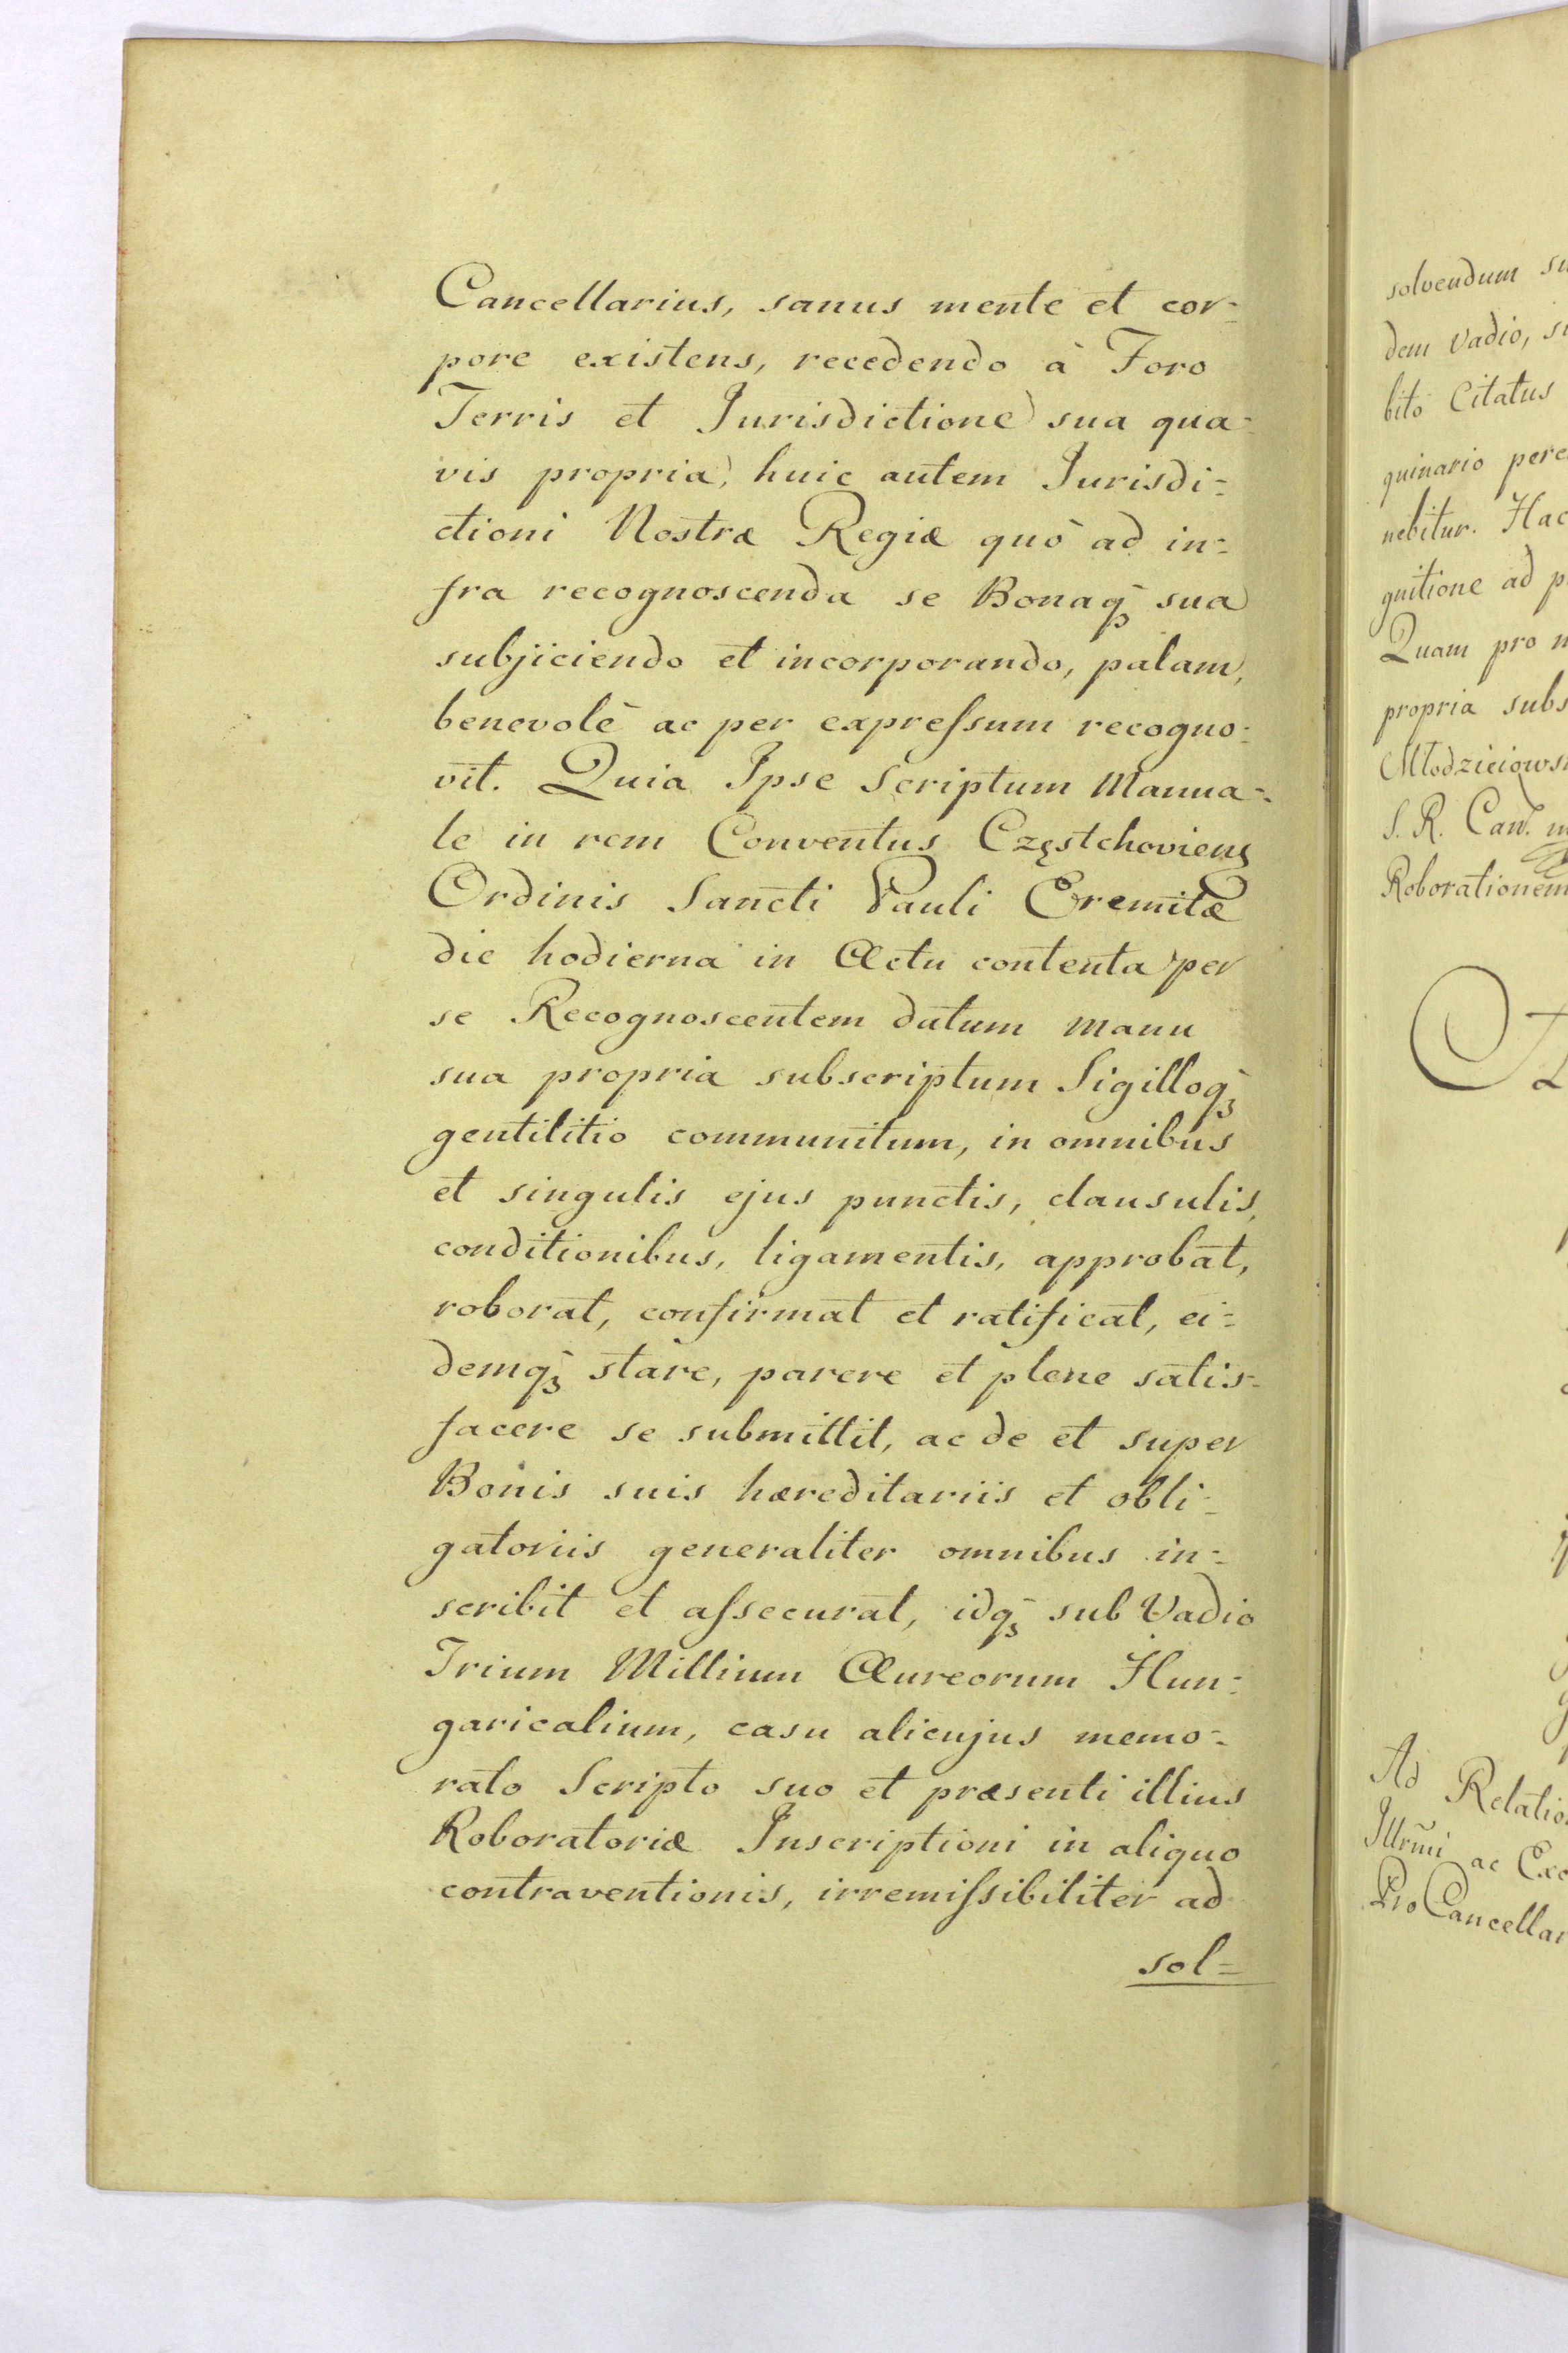 Cancellarius, sanus mente et cor=
pore existens, recedendo à Foro
Terris et Jurisdictione sua qua=
vis propria, huic autem Jurisdi=
ctioni Nostræ Regiæ quò ad in=
fra recognoscenda se Bonaqꝫ sua
subjiciendo et incorporando, palam,
benevolè ac per expreſsum recogno=
vit. Quia Ipse Scriptum Manua=
le in rem Conventus Częstchoviens
Ordinis Sancti Pauli Eremitæ
die hodierna in Actu contenta per
se Recognoscentem datum manu
sua propria subscriptum Sigilloqꝫ
gentilitio communitum, in omnibus
et singulis ejus punctis, clausulis,
conditionibus, ligamentis, approbat,
roborat, confirmat et ratificat, ei=
demqꝫ stare, parere et plene satis=
facere se submittit, ac de et super
Bonis suis hæreditariis et obli=
gatoriis generaliter omnibus in=
scribit et aſsecurat, idqꝫ sub Vadio
Trium Millium Aureorum Hun=
garicalium, casu alicujus memo=
rato Scripto suo et præsenti illius
Roboratoriæ Inscriptioni in aliquo
contraventionis, irremiſsibiliter ad
sol=
solvendum su
dem vadio, s
bitò Citatus
quinario pere
nebitur. Hac
gnitione ad p
Quam pro m
propria subs
Młodzieiows
S. R. Canc. m
Roborationem
Ad Relatio
Illrmi ac Exc
Pro Cancellar